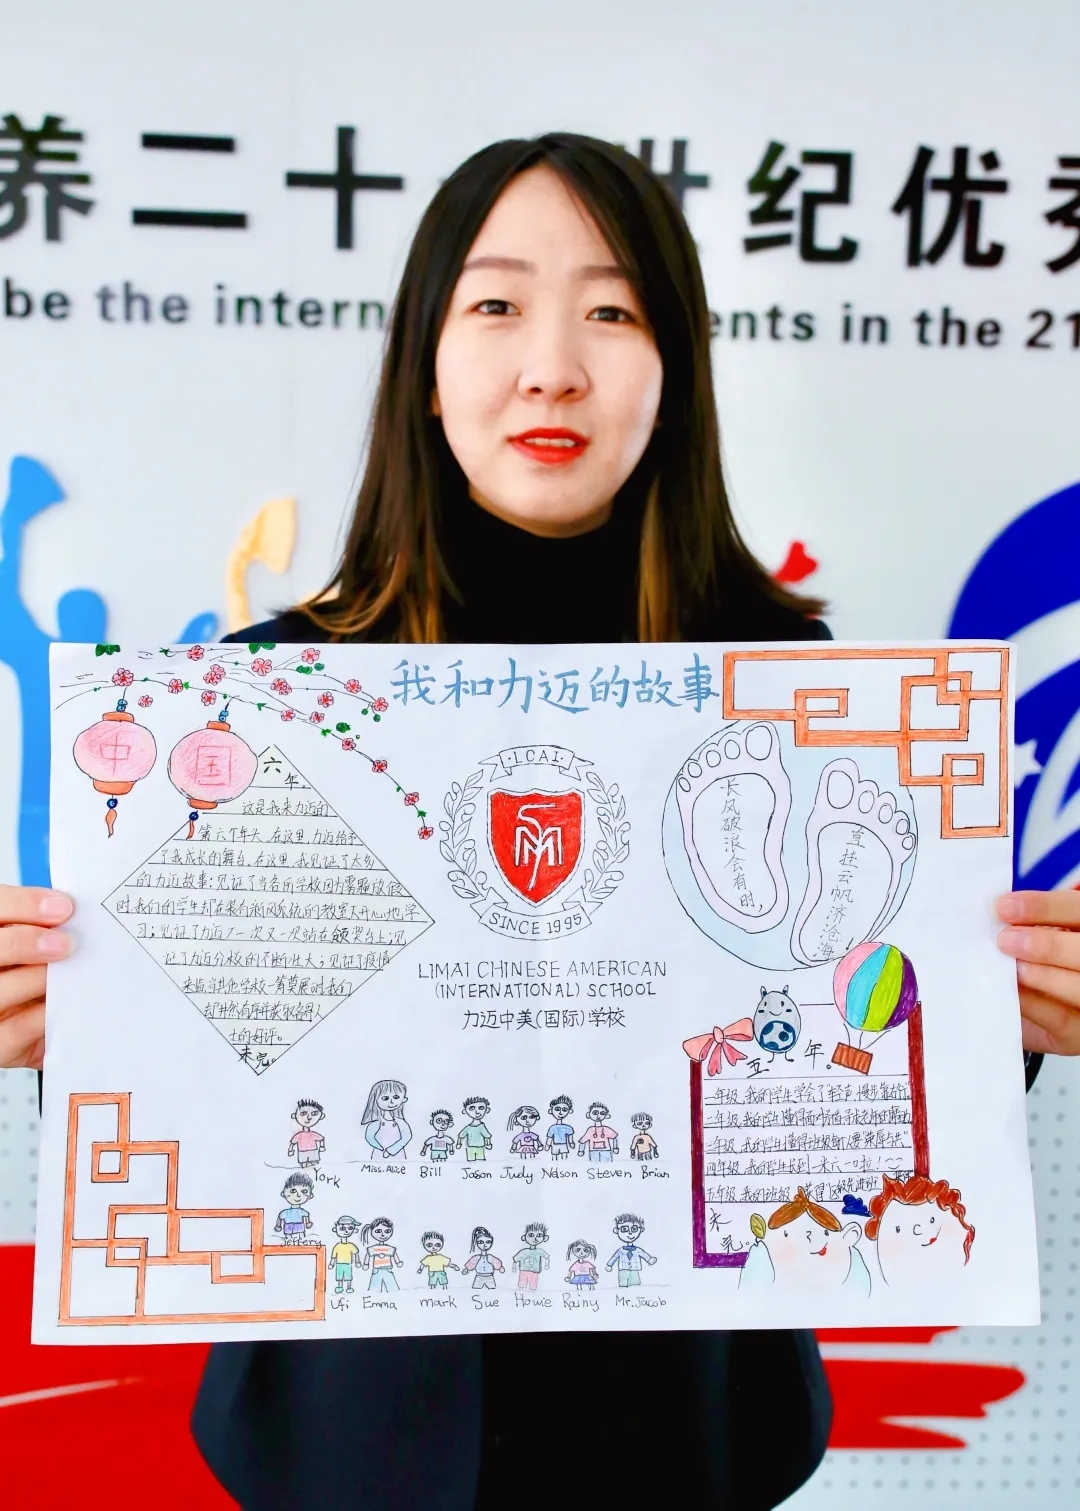 养二十 世纪优秀
be the intern ents in the 21
我和力迈的故事
中
国
六年。
这是我来力迈的
第六个年头,在这里,力迈给予
了我成长的舞台,在这里,我见证了太多
的力迈故事:见证了当各所学校因为雾霾放假
时,我们的学生却在装有新风系统的教室中开心地学
习;见证了力迈人一次又一次站在颁奖台上;见
证了力迈分校的不断壮大;见证了疫情
来临,当其他学校一筹莫展时,我们
却井然有序并获取各界人
士的好评。
未完。
LCAI
SINCE 1995
LIMAI CHINESE AMERICAN
(INTERNATIONAL) SCHOOL
力迈中美(国际)学校
长风破浪会有时,
直挂云帆济沧海
五年。
一年级,我的学生学会了"轻声、慢步、靠右行"
二年级,我的学生懂得
三年级,我的学生懂得
四年级,我的学生长到一米六一啦!
五年级,我的班级 获得
未完。
York
Miss.Alice
Bill
Jason
Judy
Nelson
Steven
Brian
Jeffery
Ufi
Emma
mark
Sue
Howie
Rainy
Mr.Jacob